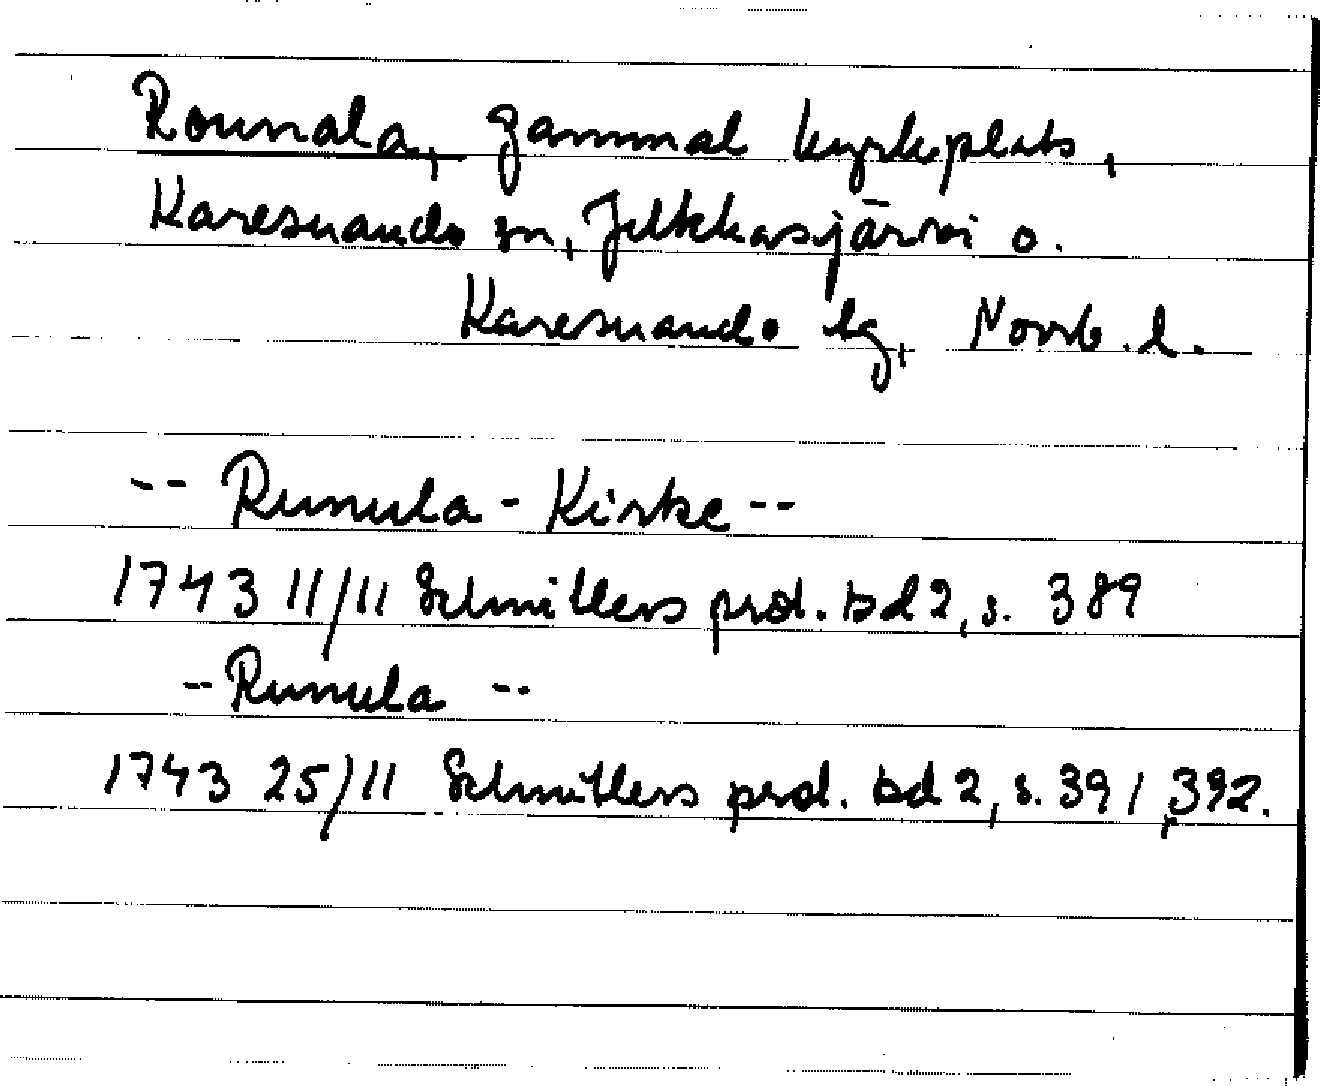 Rounala, gammal kyrkplats,
Karesuando sn, Jukkasjärvi o.
Karesuando lg, Norrb. l.
-- Runula - Kirke --
1743 11/11 Schnitlers prot. bd 2, s. 389
- Runula --
1743 25/11 Schnitlers prot. bd 2, s. 391, 392.